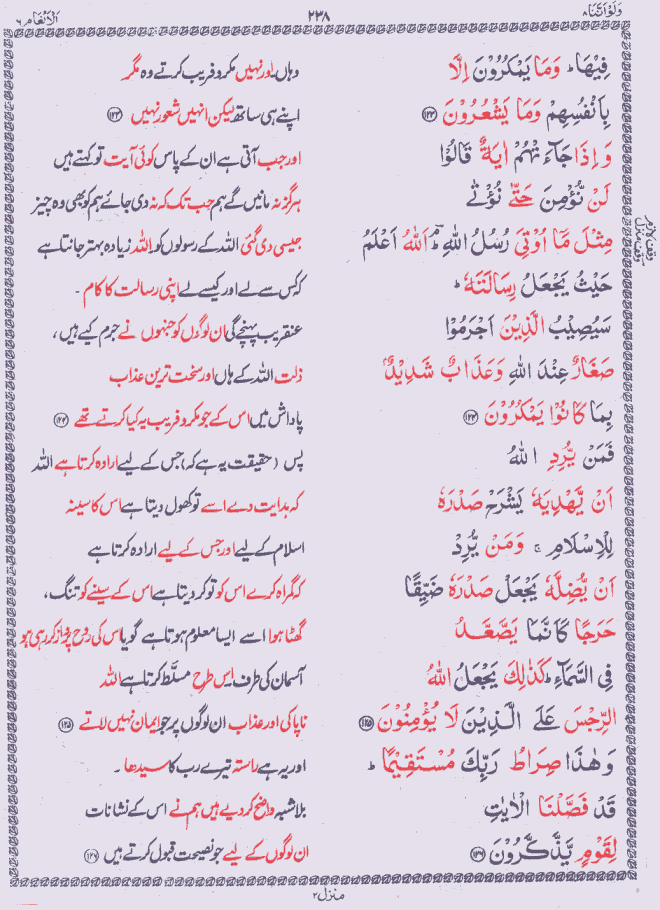 وَلَوْ اَنَّنَا ٨
٢٣٨
اَلْاَنْعَام ٦
فِيْهَا ؕ وَمَا يَمْكُرُوْنَ اِلَّا
وہاں۔ اور نہیں مکر و فریب کرتے وہ مگر
بِاَنْفُسِهِمْ وَمَا يَشْعُرُوْنَ ﴿۱۲۳﴾
اپنے ہی ساتھ لیکن انہیں شعور نہیں ﴿۱۲۳﴾
وَاِذَا جَآءَتْهُمْ اٰيَةٌ قَالُوْا
اور جب آتی ہے ان کے پاس کوئی آیت تو کہتے ہیں
لَنْ نُّؤْمِنَ حَتّٰى نُؤْتٰى
ہرگز نہ مانیں گے ہم جب تک کہ نہ دی جائے ہم کو بھی وہ چیز
مِثْلَ مَآ اُوْتِيَ رُسُلُ اللّٰهِ ؔۘ اَللّٰهُ اَعْلَمُ
جیسی دی گئی اللہ کے رسولوں کو۔ اللہ زیادہ بہتر جانتا ہے
حَيْثُ يَجْعَلُ رِسَالَتَهٗ ؕ
کہ کس سے لے اور کیسے لے اپنی رسالت کا کام ۔
سَيُصِيْبُ الَّذِيْنَ اَجْرَمُوْا
عنقریب پہنچے گی ان لوگوں کو جنہوں نے جرم کیے ہیں ،
صَغَارٌ عِنْدَ اللّٰهِ وَعَذَابٌ شَدِيْدٌۢ
ذلت اللہ کے ہاں اور سخت ترین عذاب
بِمَا كَانُوْا يَمْكُرُوْنَ ﴿۱۲۴﴾
پاداش میں اس کے جو مکر و فریب یہ کیا کرتے تھے ﴿۱۲۴﴾
فَمَنْ يُّرِدِ اللّٰهُ
پس (حقیقت یہ ہے کہ) جس کے لیے ارادہ کرتا ہے اللہ
اَنْ يَّهْدِيَهٗ يَشْرَحْ صَدْرَهٗ
کہ ہدایت دے اسے تو کھول دیتا ہے اس کا سینہ
لِلْاِسْلَامِ ۚ وَمَنْ يُّرِدْ
اسلام کے لیے اور جس کے لیے ارادہ کرتا ہے
اَنْ يُّضِلَّهٗ يَجْعَلْ صَدْرَهٗ ضَيِّقًا
کہ گمراہ کرے اس کو تو کر دیتا ہے اس کے سینے کو تنگ،
حَرَجًا كَاَنَّمَا يَصَّعَّدُ
گھٹا ہوا اسے ایسا معلوم ہوتا ہے گویا اس کی روح پرواز کر رہی ہو
فِي السَّمَآءِ ؕ كَذٰلِكَ يَجْعَلُ اللّٰهُ
آسمان کی طرف۔ اس طرح مسلّط کرتا ہے اللہ
الرِّجْسَ عَلَى الَّذِيْنَ لَا يُؤْمِنُوْنَ ﴿۱۲۵﴾
ناپاکی اور عذاب ان لوگوں پر جو ایمان نہیں لاتے ﴿۱۲۵﴾
وَهٰذَا صِرَاطُ رَبِّكَ مُسْتَقِيْمًا ؕ
اور یہ ہے راستہ تیرے رب کا سیدھا ۔
قَدْ فَصَّلْنَا الْاٰيٰتِ
بلاشبہ واضح کر دیے ہیں ہم نے اس کے نشانات
لِقَوْمٍ يَّذَّكَّرُوْنَ ﴿۱۲۶﴾
ان لوگوں کے لیے جو نصیحت قبول کرتے ہیں ﴿۱۲۶﴾
منزل ۲